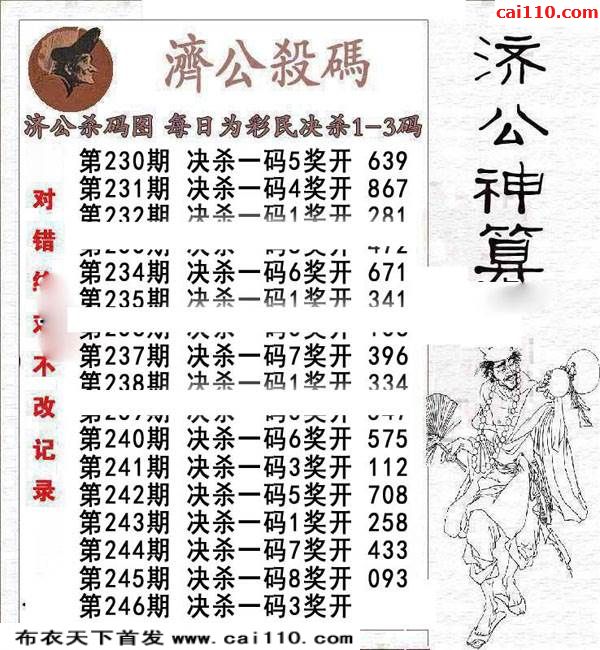 cai110.com
濟公殺碼
济公杀码图 每日为彩民决杀1-3码
第230期 决杀一码5奖开 639
第231期 决杀一码4奖开 867
第232期 决杀一码1奖开 281
第234期 决杀一码6奖开 671
第235期 决杀一码1奖开 341
第237期 决杀一码7奖开 396
第238期 决杀一码1奖开 334
第240期 决杀一码6奖开 575
第241期 决杀一码3奖开 112
第242期 决杀一码5奖开 708
第243期 决杀一码1奖开 258
第244期 决杀一码7奖开 433
第245期 决杀一码8奖开 093
第246期 决杀一码3奖开
对错 不改记录
济公神算
布衣天下首发 www.cai110.com